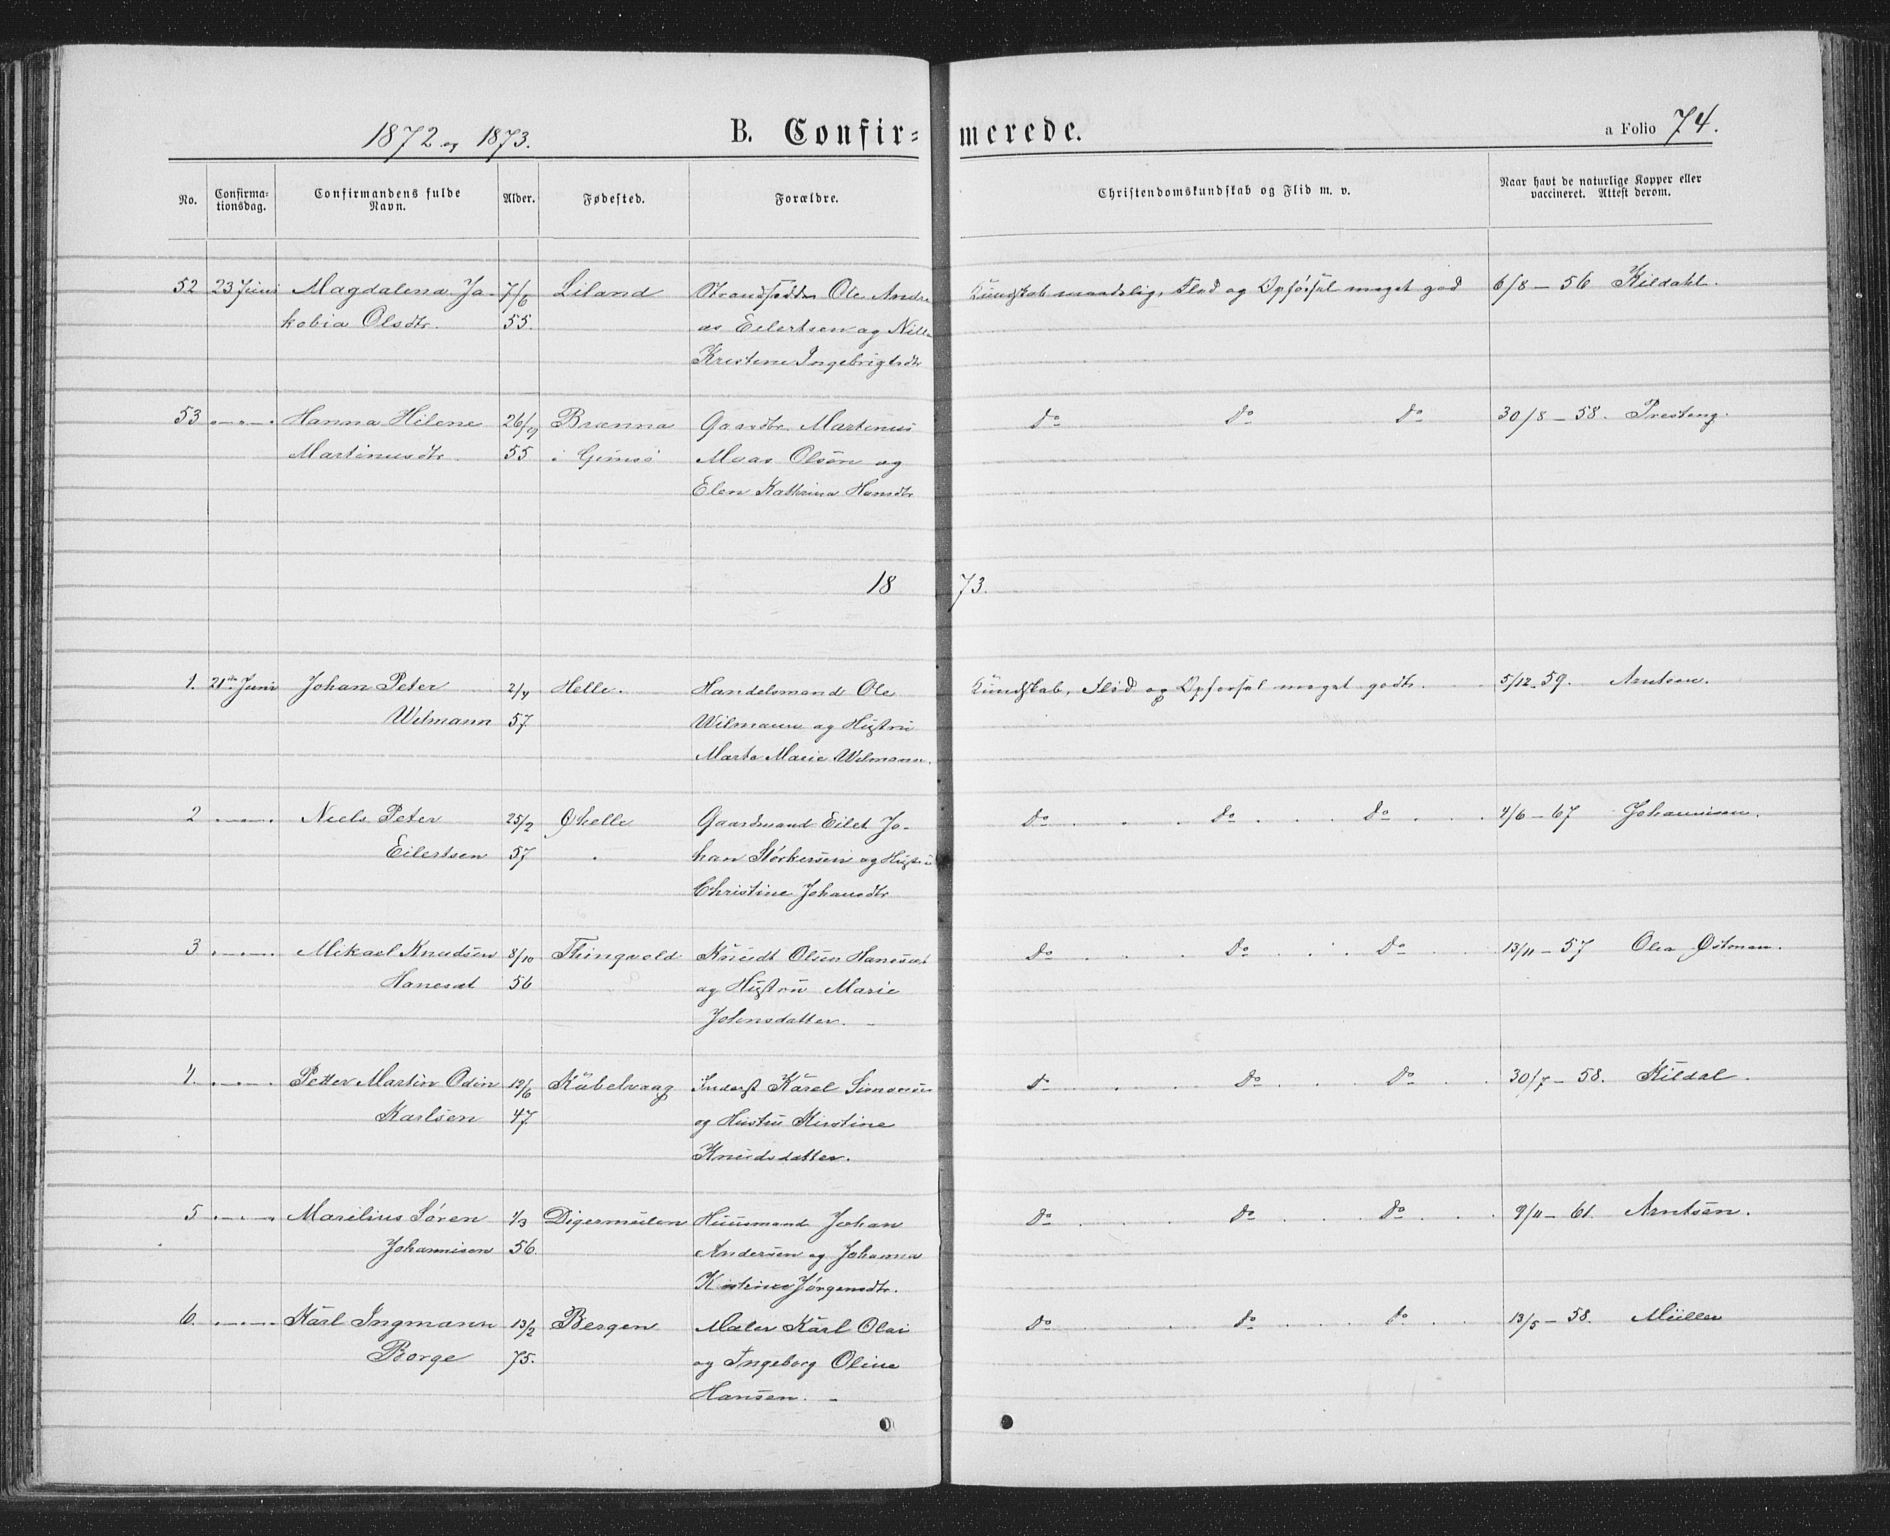 1872 og 1873.
B. Confir-
merede.
a Folio 74.
No.
Confirma-
tionsdag.
Confirmandens fulde
Navn.
Alder.
Fødested.
Forældre.
Christendomskundskab og Flid m. v.
Naar havt de naturlige Kopper eller
vaccineret. Attest derom.
52 23 Juni Magdalena Ja- 7/6 Liland Strandsidder Ole Andre Kundskab maadelig, Flid og Opførsel meget god 6/8 - 56 Kildahl.
kobia Olsdtr. 55. as Eilertsen og
Kristine Ingebrigtsdtr
53 Hanna Hilene 26/ Brænna Gaardbr. Martinus do do do 30/8 - 58. Presteng.
Martinusdtr. 55 i Gimsö Maas Olsen og
Elen Kathrina Hansdtr
18 73.
1. 21de Juni Johan Peter 2/4 Helle. Handelsmand Ole Kundskab, Flid og Opførsel meget godt. 5/12-59. Arntsen.
Wilmann 57. Wilmann og Hustru
Marta Marie Wilmann.
2 Niels Peter 25/2 Øhelle Gaardmand Eilet Jo- do do do 4/6 - 67 Johannisen.
Eilertsen 57 han Størkersen og Hustru
Christine Johansdtr
3 Mikael Knudsen 8/10 Thingvold Knudt Olsen Hanesæt do do do 13/11 - 57 Olea Østman.
Hanesæt 56 og Hustru Marie
Johnsdatter.
4. Petter Martin Odin 12/6 Kabelvaag Inderst Karel Simonsen do do do 30/7 - 58. Kildal.
Karlsen 47. og Hustru Kirstine
Knudsdatter.
5 Marilius Søren 1/3 Digermulen Huusmand Johan do do do 9/11 - 61. Arntsen.
Johannisen 56. Andersen og Johanna
Katrine Jørgensdtr.
6. Karl Ingmann 13/2 Bergen Maler Karl Olai do do do 13/5 - 58. Müller
Borge 75. og Ingeborg Oline
Hansen.